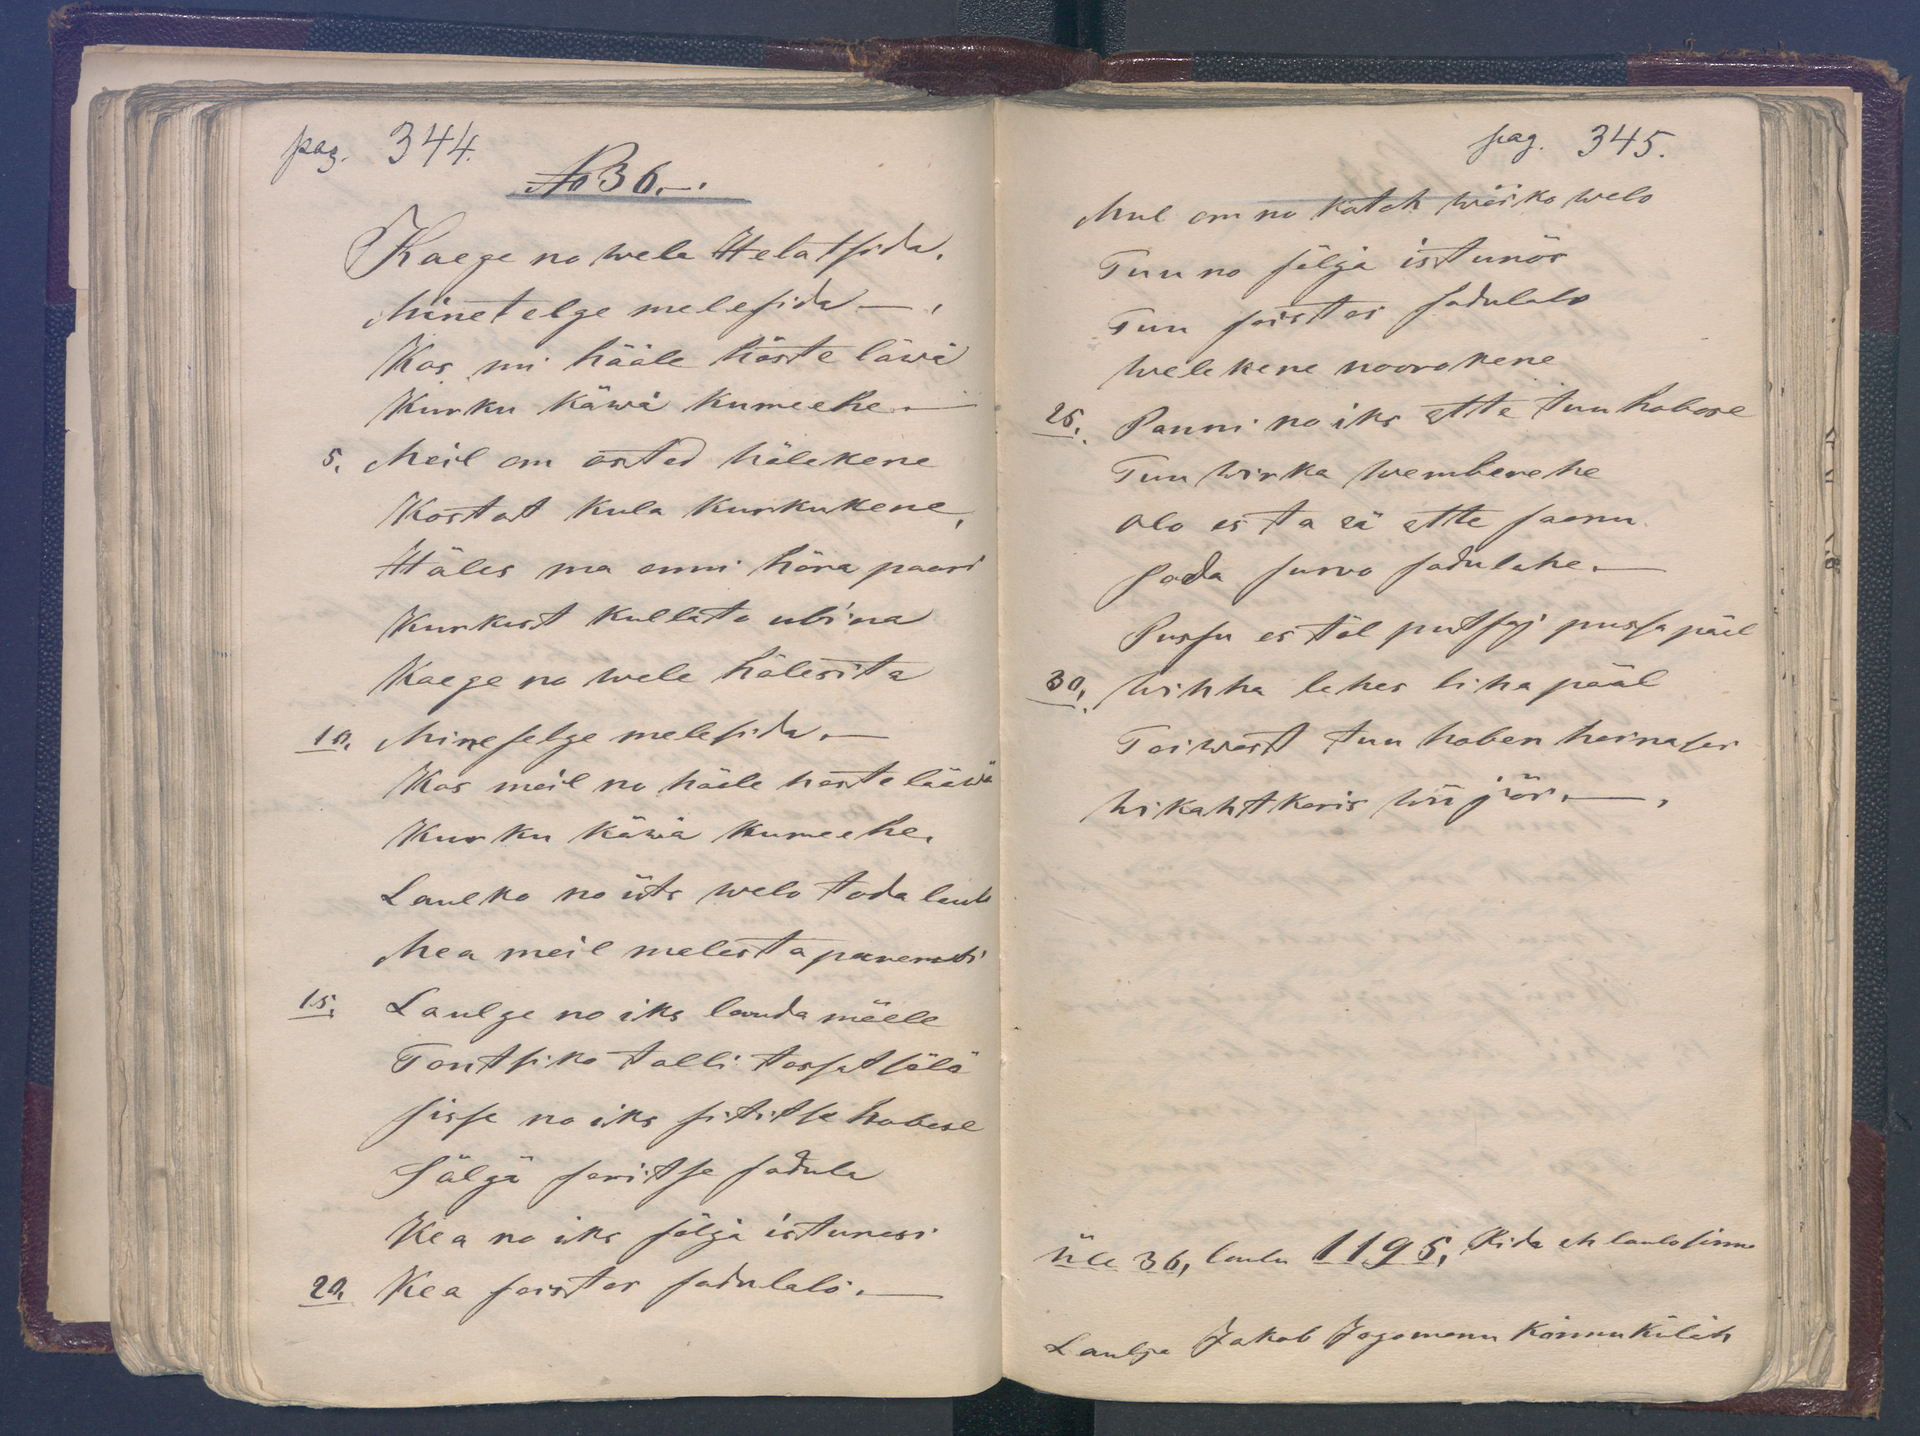 pag. 344.
No 36.
Kaege no wele Helätsida,
Minetelge melesida —,
Kas mi hääle häste läwä
Kurku käwä kumeehe. —
5. Meil om osted hälekene
Kostat kula kurkukene,
Häles ma anni höra paari
Kurkust kullate ubina
Kaege no wele hälesita
10. Mineselge melesida. —
Kas meil no hääle haste lääwä
Kurku käwä kumeehe.
Laulke no üts welo toda laulu
Mea meil melesta parembi
15. Laulge no iks lauda mäele
Tontsiko talli tassatsölö
Sisse no iks sititse hobese
Sälgä saritse sadula
Kea no iks sälgä istunessi
20. Kea saistas sadulalö. —
pag. 345.
Mul om no katek wäiko welo
Tuu no sälgä istunös
Tuu saistas sadulalo
Welekene noorokene
25. Panni no iks ette tuu hobose
Tuu wirka wemberehe
Olo es ta ää ette saanu
Sada survo sadulahe. —
Pussu es täl putsaj pussa pääl
30. Wihha lehes liha pääl
Toiwast tuu hoben hainases
Wikahtkaris wii jär. —,
Üle 36, laulu 1195, Rida eh laulosinno
Laulja Jakob Jagomann Kännu Küläh